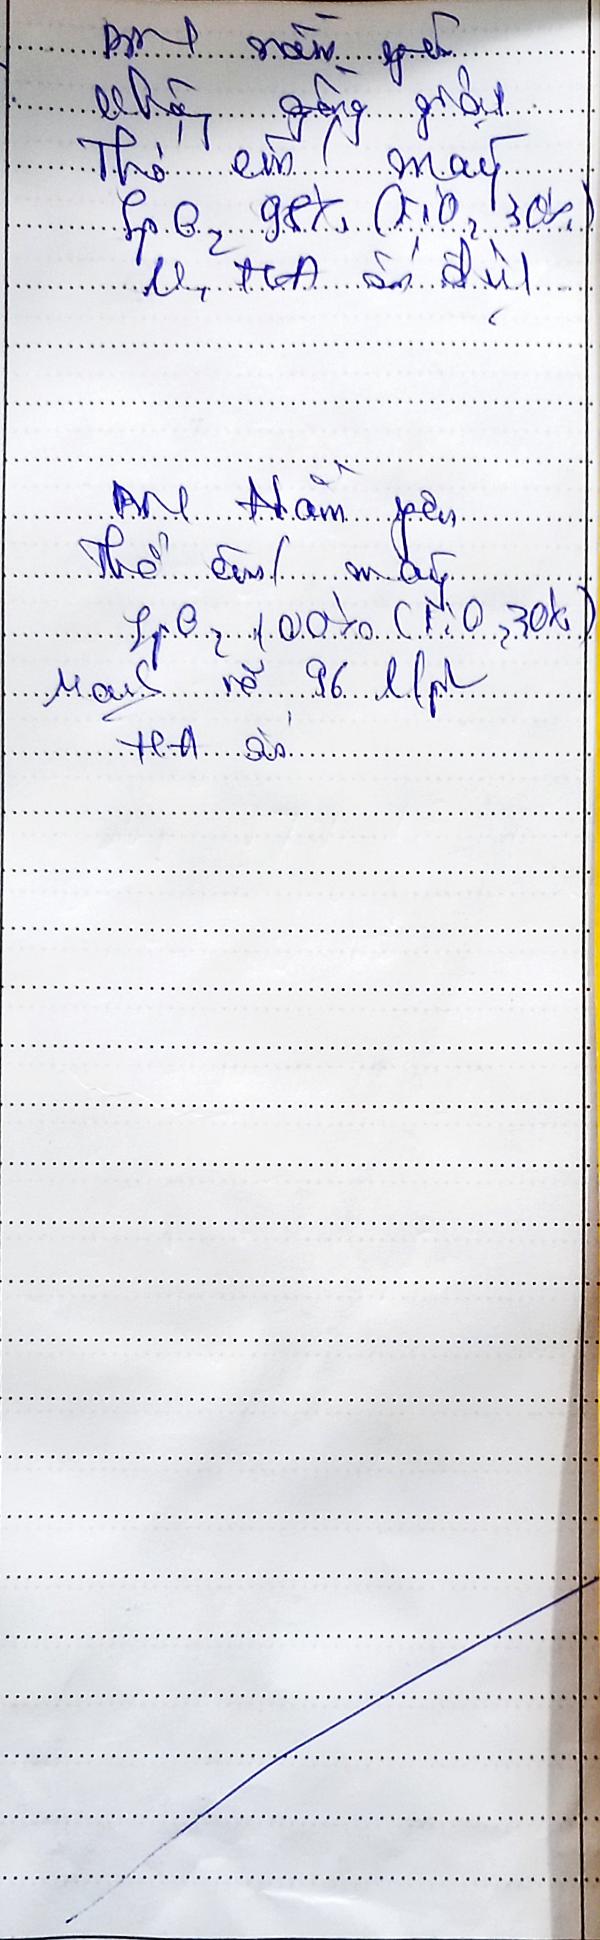 BN nằm yên
Không gồng giật
Thở êm / máy
SpO2 98% (FiO2 30%)
M, HA ổn
BN nằm yên
Thở êm / máy
SpO2 100% (FiO2 30%)
Mạch rõ 96 l/ph
HA ổn